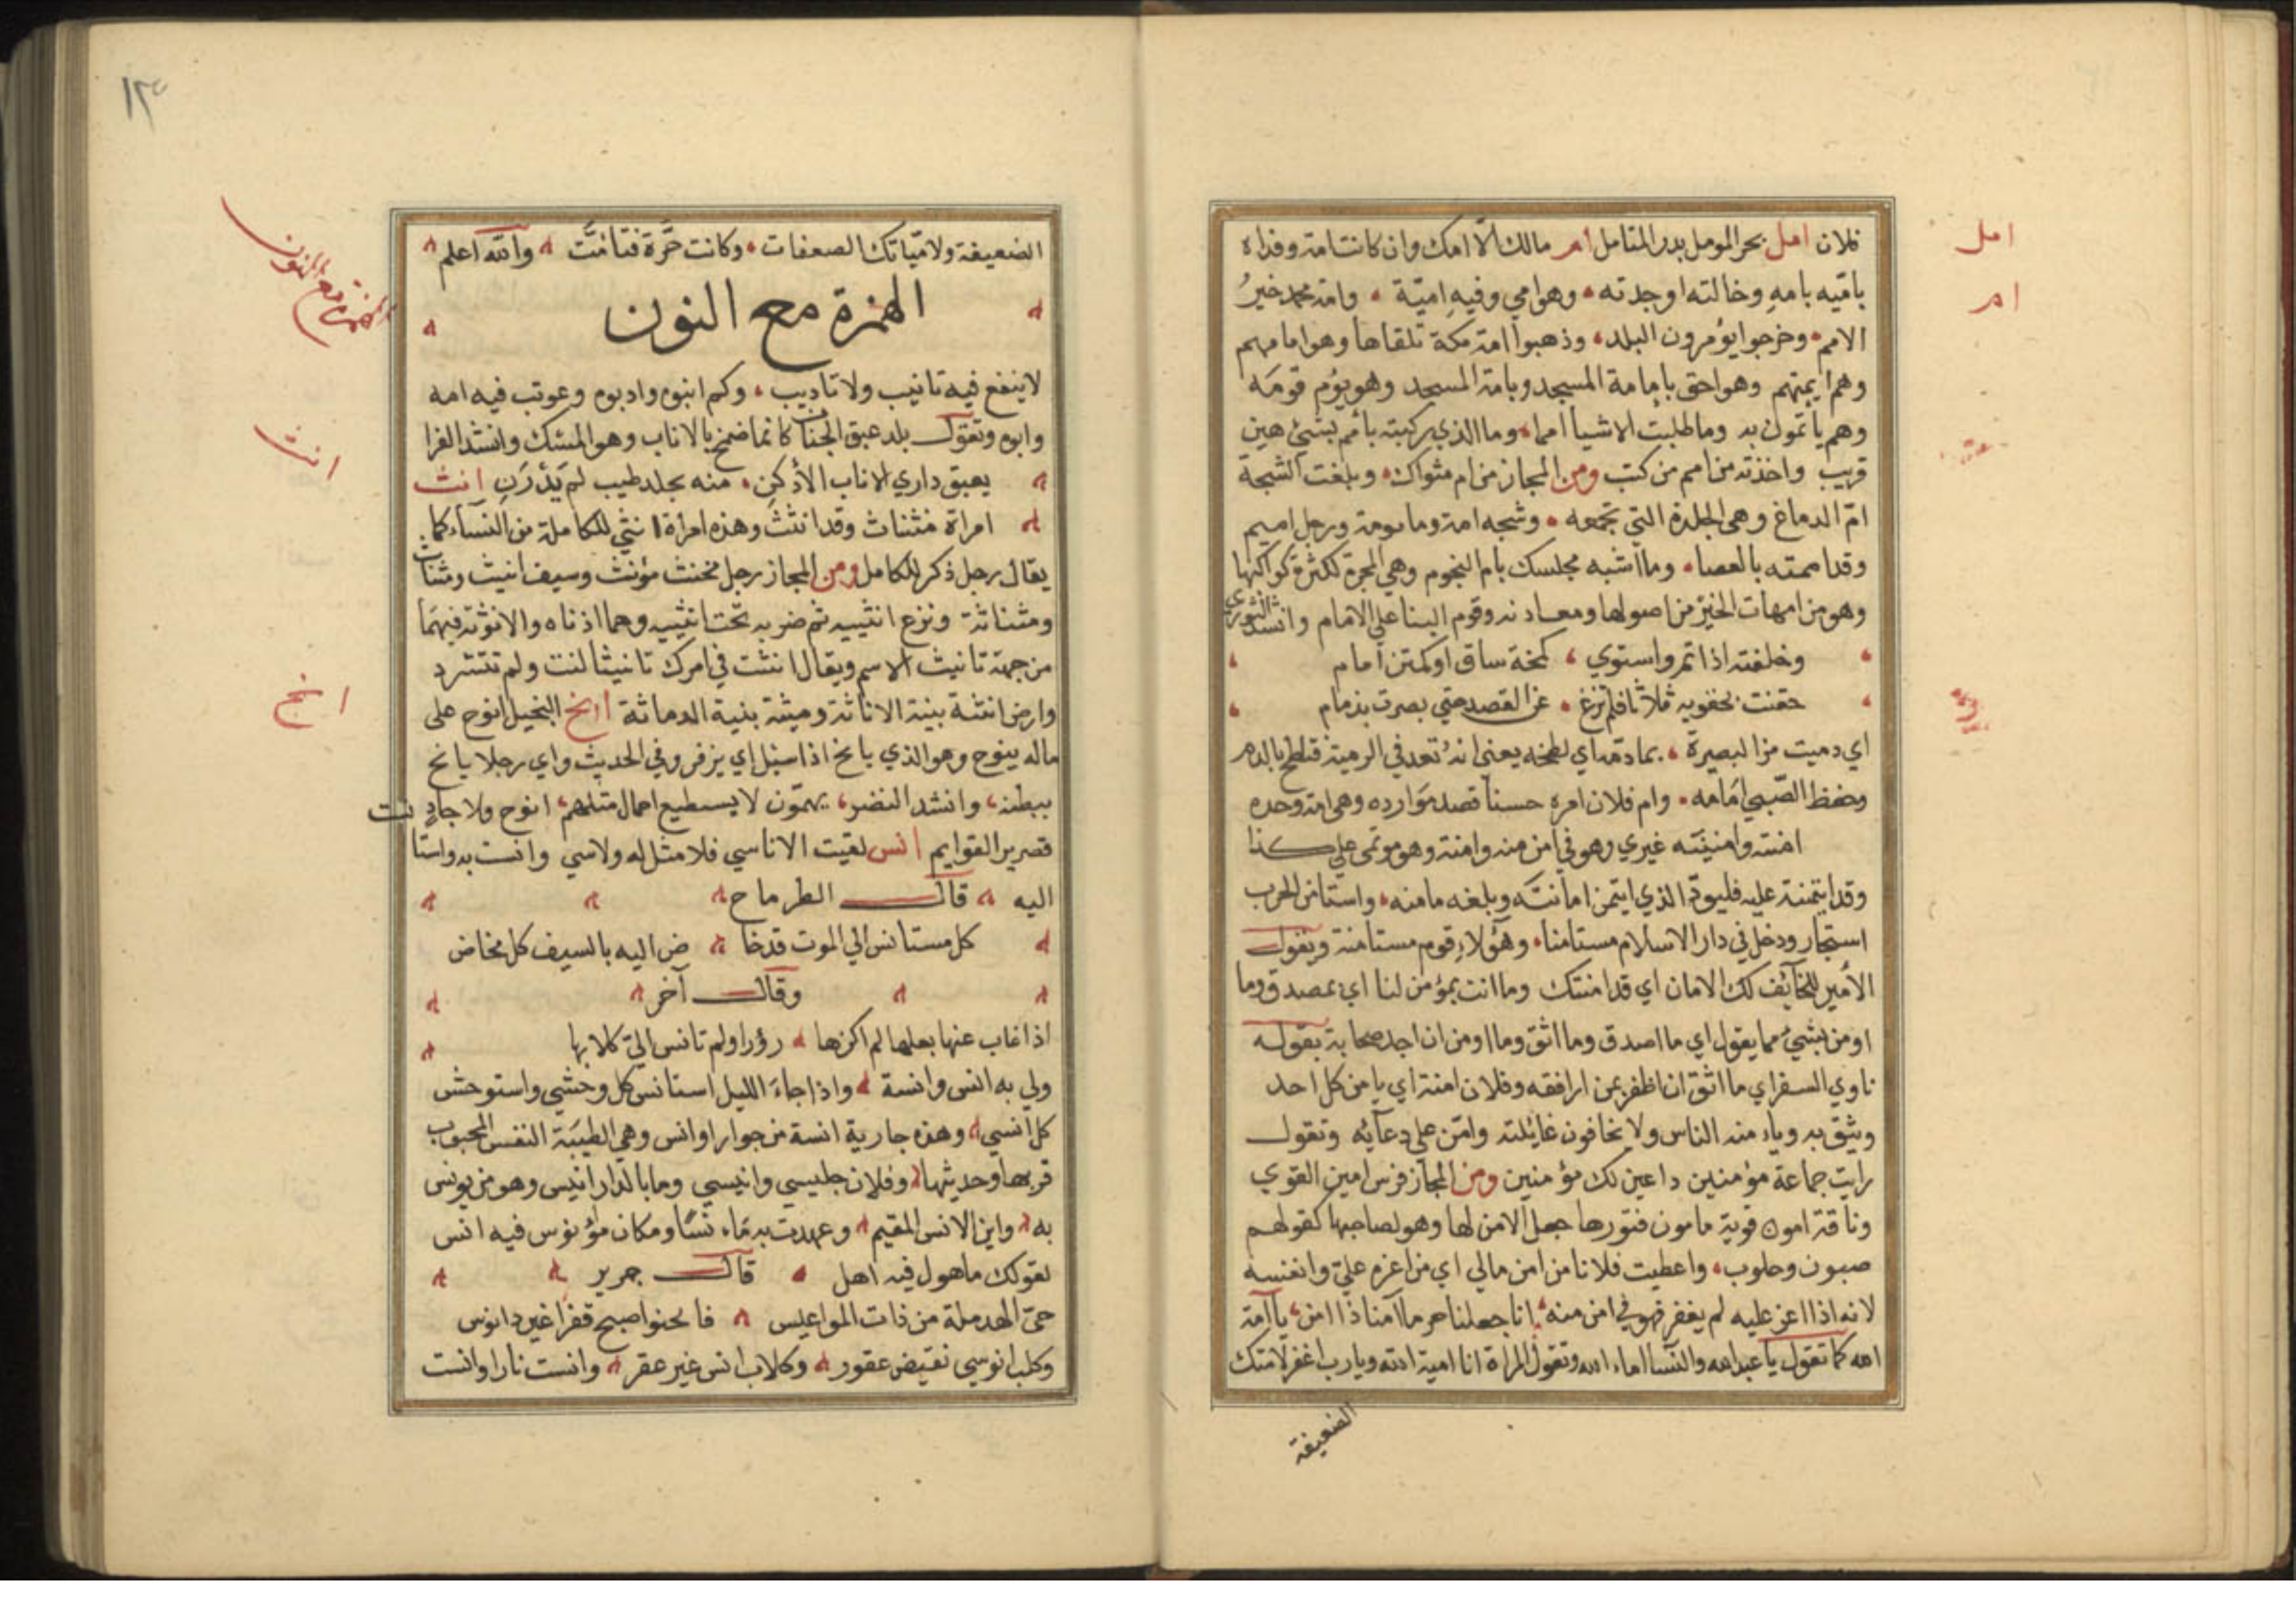 فلان امل بحر المومل بدر المتامل ام مالك الا امك وان كانت امة وفداه
باميه بامه وخالته او جدته وهو امي وفيه امية وامة محمد خير
الامم وخرجوا يؤمون البلد وذهبوا امة مكة تلقاها وهو امامهم
وهم ايمتهم وهو احق بامامة المسجد وبامة المسجد وهو يؤم قومه
وهم ياتمون به وما طلبت الاشيا امما وما الذي ركبته بامم بشئ هين
قريب واخذته من امم من كتب ومن المجاز من ام مثواك وبلغت الشجة
ام الدماغ وهي الجلدة التي تجمعه وشجه امة ومامومة ورجل اميم
وقد اممته بالعصا وما اشبه مجلسك بام النجوم وهي المجرة لكثرة كواكبها
وهو من امهات الخير من اصولها ومعادنه وقوم البنا علي الامام وانشد الثوري
وخلفته اذا تم واستوي كمخة ساق او كمتن امام
حقنت بحقويه ثلاثا فلم تزغ عن القصد حتي بصرت بدمام
اي دميت من البصيرة بمادته اي لطخه يعني انه تعد في الرمية فتلطخ بالدم
وحفظ الصبي امامه وام فلان امره حسنا قصد موارده وهي امة وحده
امنته وامنيته غيري وهو في امن منه وامنة وهو موتمن علي كذا
وقد ايتمنته عليه فليود الذي ايتمن امانته وبلغه مامنه واستامن الحرب
استجار ودخل في دار الاسلام مستامنا وهؤلاء قوم مستامنة ويقول
الامير للخائف لك الامان اي قد امنتك وما انت بمؤمن لنا اي بمصدق وما
اومن بشئ مما يقول اي ما اصدق وما اثق وما اومن ان اجد صحابة يقوله
ناوي السفر اي ما اثق ان اظفر بمن ارافقه وفلان امنة اي يامن كل احد
ويثق به ويامنه الناس ولا يخافون غائلته وامن علي دعائه وتقول
رايت جماعة مؤمنين داعين لك مؤمنين ومن المجاز فرس امين القوي
وناقة امون قوية مامون فتورها جعل الامن لها وهو لصاحبها كقولهم
ضبون وحلوب واعطيت فلانا من امن مالي اي من اعزه علي وانفسه
لانه اذا اعز عليه لم يعقر فهو في امن منه انا جعلنا حرما آمنا ذا امن يا امة
الله كما تقول يا عبد الله والنسا اماء الله وتقول المراة انا امية الله ويا رب اغفر لامتك
الضعيفة
امل
ام
١٣
الضعيفة ولامياتك الضعفات وكانت حرة فتامت والله اعلم
الهمزة مع النون
لا ينفع فيه تانيب ولا تاديب وكم انبوه وادبوه وعوتب فيه امه
وابوه وتقول بلد عبق الجناب كانما ضمخ بالاناب وهو المسك وانشد الفرا
يعبق داري الاناب الأدكن منه بجلد طيب لم يدرن انث
امراة مئناث وقد انثث وهذه امرأة انثي للكاملة من النساء كما
يقال رجل ذكر للكامل ومن المجاز رجل مخنث مؤنث وسيف انيث ومئناث
ومئناثة ونزع انثييه ثم ضربه تحت انثييه وهما اذناه والانوثة فيهما
من جهة تانيث الاسم ويقال انثت في امرك تانيثا لنت ولم تتشدد
وارض انيثة بينة الاناثة وميثة بنية الدماثة انح البخيل انوح علي
ماله ينوح وهو الذي يانح اذا سئل اي يزفر وفي الحديث واي رجلا يانح
ببطنه وانشد النضر يهمون لا يسطيع احمال مثلهم انوح ولا جاد
قصير القوايم انس لقيت الاناسي فلا مثل له ولاسي وانست به واستانست
اليه قال الطرماح
كل مستانس الي الموت قد خا ض اليه بالسيف كل مخاض
وقال آخر
اذا غاب عنها بعلها لم اكن لها زؤرا ولم تانس الي كلابها
ولي به انس وانسة واذا جاء الليل استانس كل وحشي واستوحش
كل انسي وهذه جارية انسة من جوار اوانس وهي الطيبة النفس المحبوب
قربها وحديثها وفلان جليسي وانيسي وما بالدار انيس وهو من يونس
به واين الانس المقيم وعهدت به ماء نسا ومكان مؤنوس فيه انس
لقولك ماهول فيه اهل قال جرير
حي الهدملة من ذات المواعيس فالحنو اصبح قفرا غير مانوس
وكلب انوسي نقيض عقور وكلاب انس غير عقر وانست نارا وانست
الهمزة مع النون
انث
انح